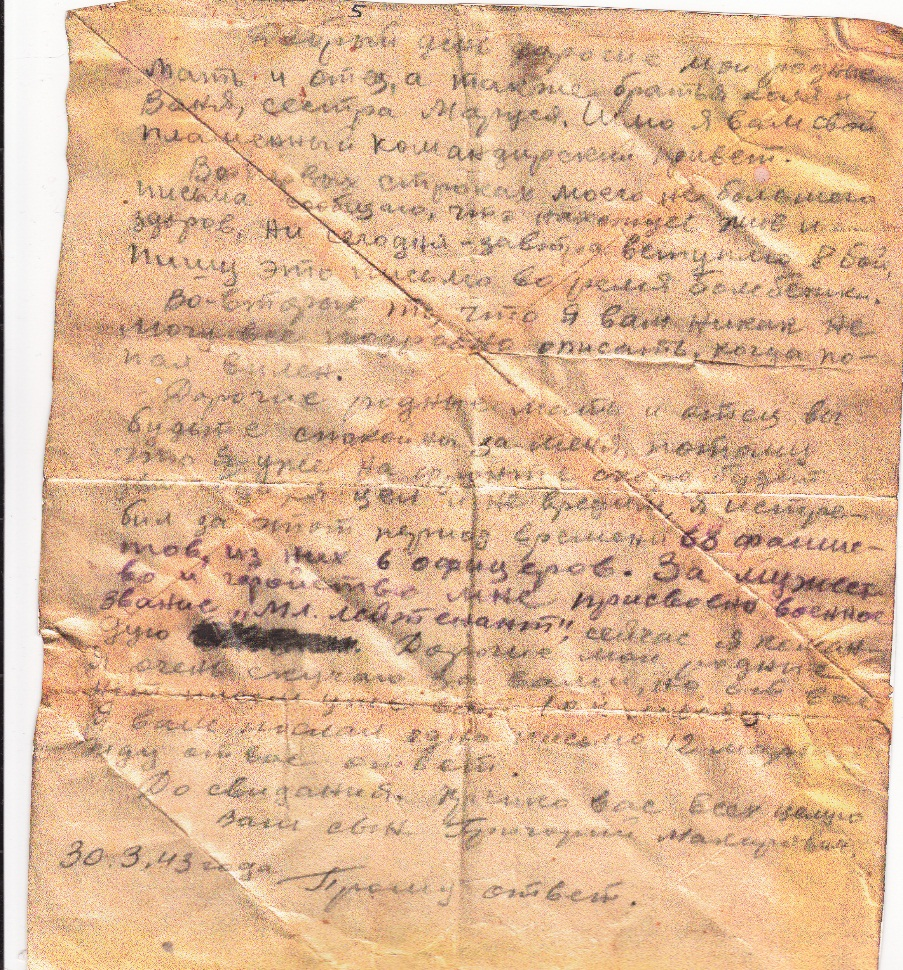 5
Добрый день дорогие мои родные
мать и отец, а также братья Коля и
Ваня, сестра Маруся. Шлю я вам свой
пламенный командирский привет.
строках моего не большого
письма сообщаю, что нахожусь жив и
здоров, Но сегодня-завтра вступлю в бой.
Пишу это письмо во время бомбежки.
Во-вторых то, что я вам никак не
могу все подробно описать, когда по-
пал в плен.
Дорогие родные мать и отец вы
будьте спокойны за меня, потому
что я уже на фронте
цел и не вредим, я истре-
бил за этот период времени 68 фашис-
тов, из них 6 офицеров. За мужест-
во и геройство мне присвоено военное
звание „Мл. лейтенант", сейчас я коман-
дую Дорогие мои родные
я очень скучаю за вами, но от вас
Я вам послал одно письмо 12 марта
жду от вас ответ.
До свидания. Крепко вас всех целую
Ваш сын Григорий
30.3.43 года
Прошу ответ.